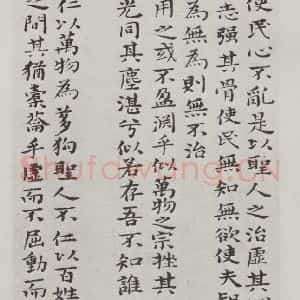 使民心不亂是以聖人之治虛其
志强其骨使民無知無欲使夫
為無為則無不治
用之或不盈淵乎似萬物之宗挫其
光同其塵湛兮似若存吾不知誰
仁以萬物為芻狗聖人不仁以百姓
之間其猶橐籥乎虛而不屈動而
Shufawang.CN